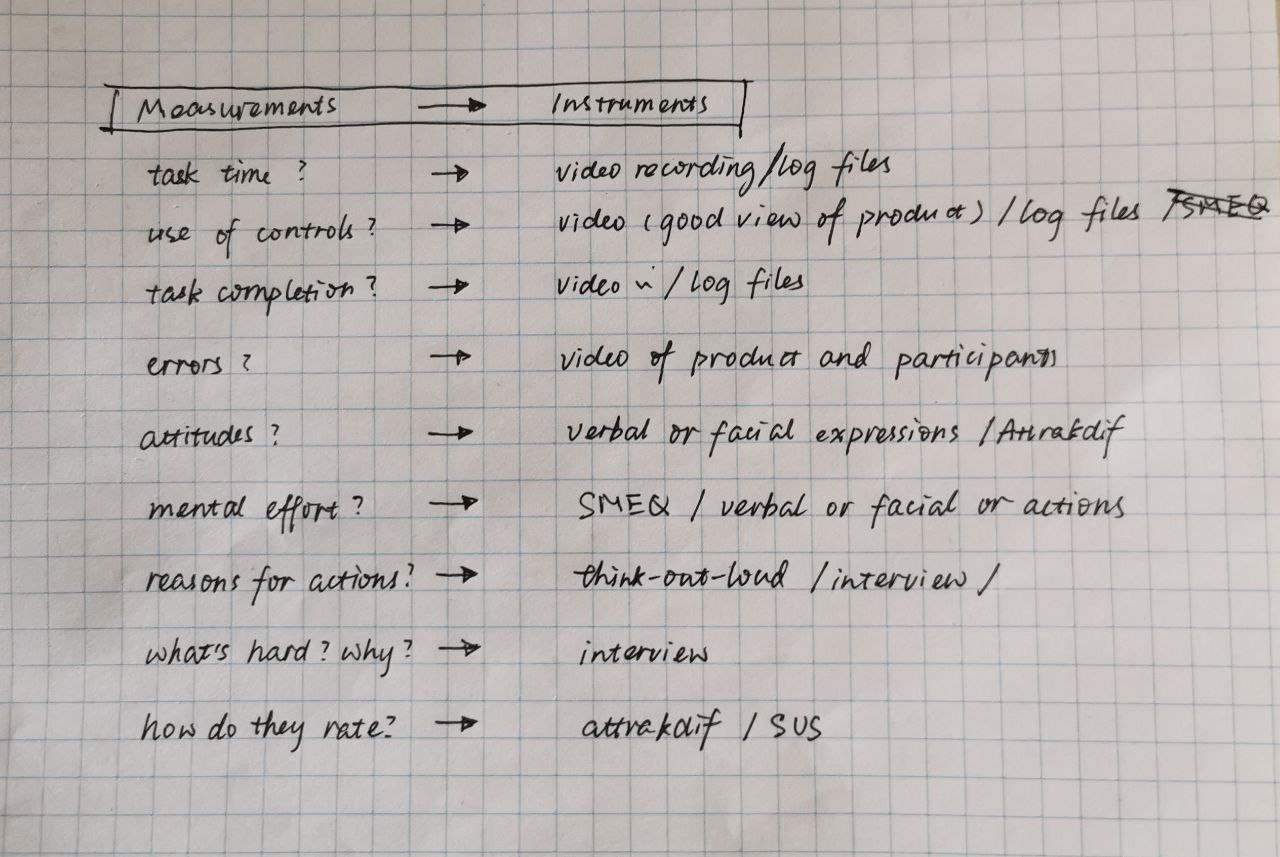 Measurements → Instruments
task time ? → video recording/log files
use of controls ? → video (good view of product) / log files /SMEQ
task completion ? → video " / log files
errors ? → video of product and participants
attitudes ? → verbal or facial expressions / Attrakdif
mental effort ? → SMEQ / verbal or facial or actions
reasons for actions? → think-out-loud / interview /
what's hard? why? → interview
how do they rate? → attrakdif / SUS